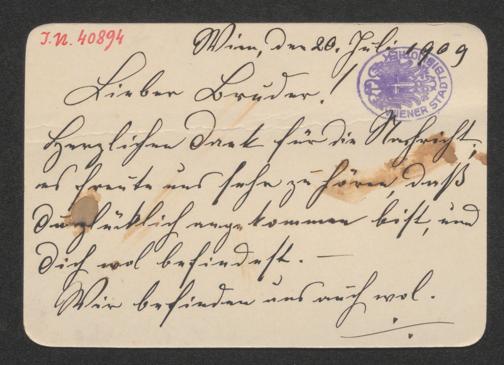 I.N. 40894
Wien, den 20. Juli 1909
WIENER STADTBIBLIOTHEK
Lieber Bruder!
Herzlichen Dank für die Nachricht,
es freute uns sehr zu hören, daß
du glücklich angekommen bist, und
Dich wol befindest. —
Wir befinden uns auch wol.